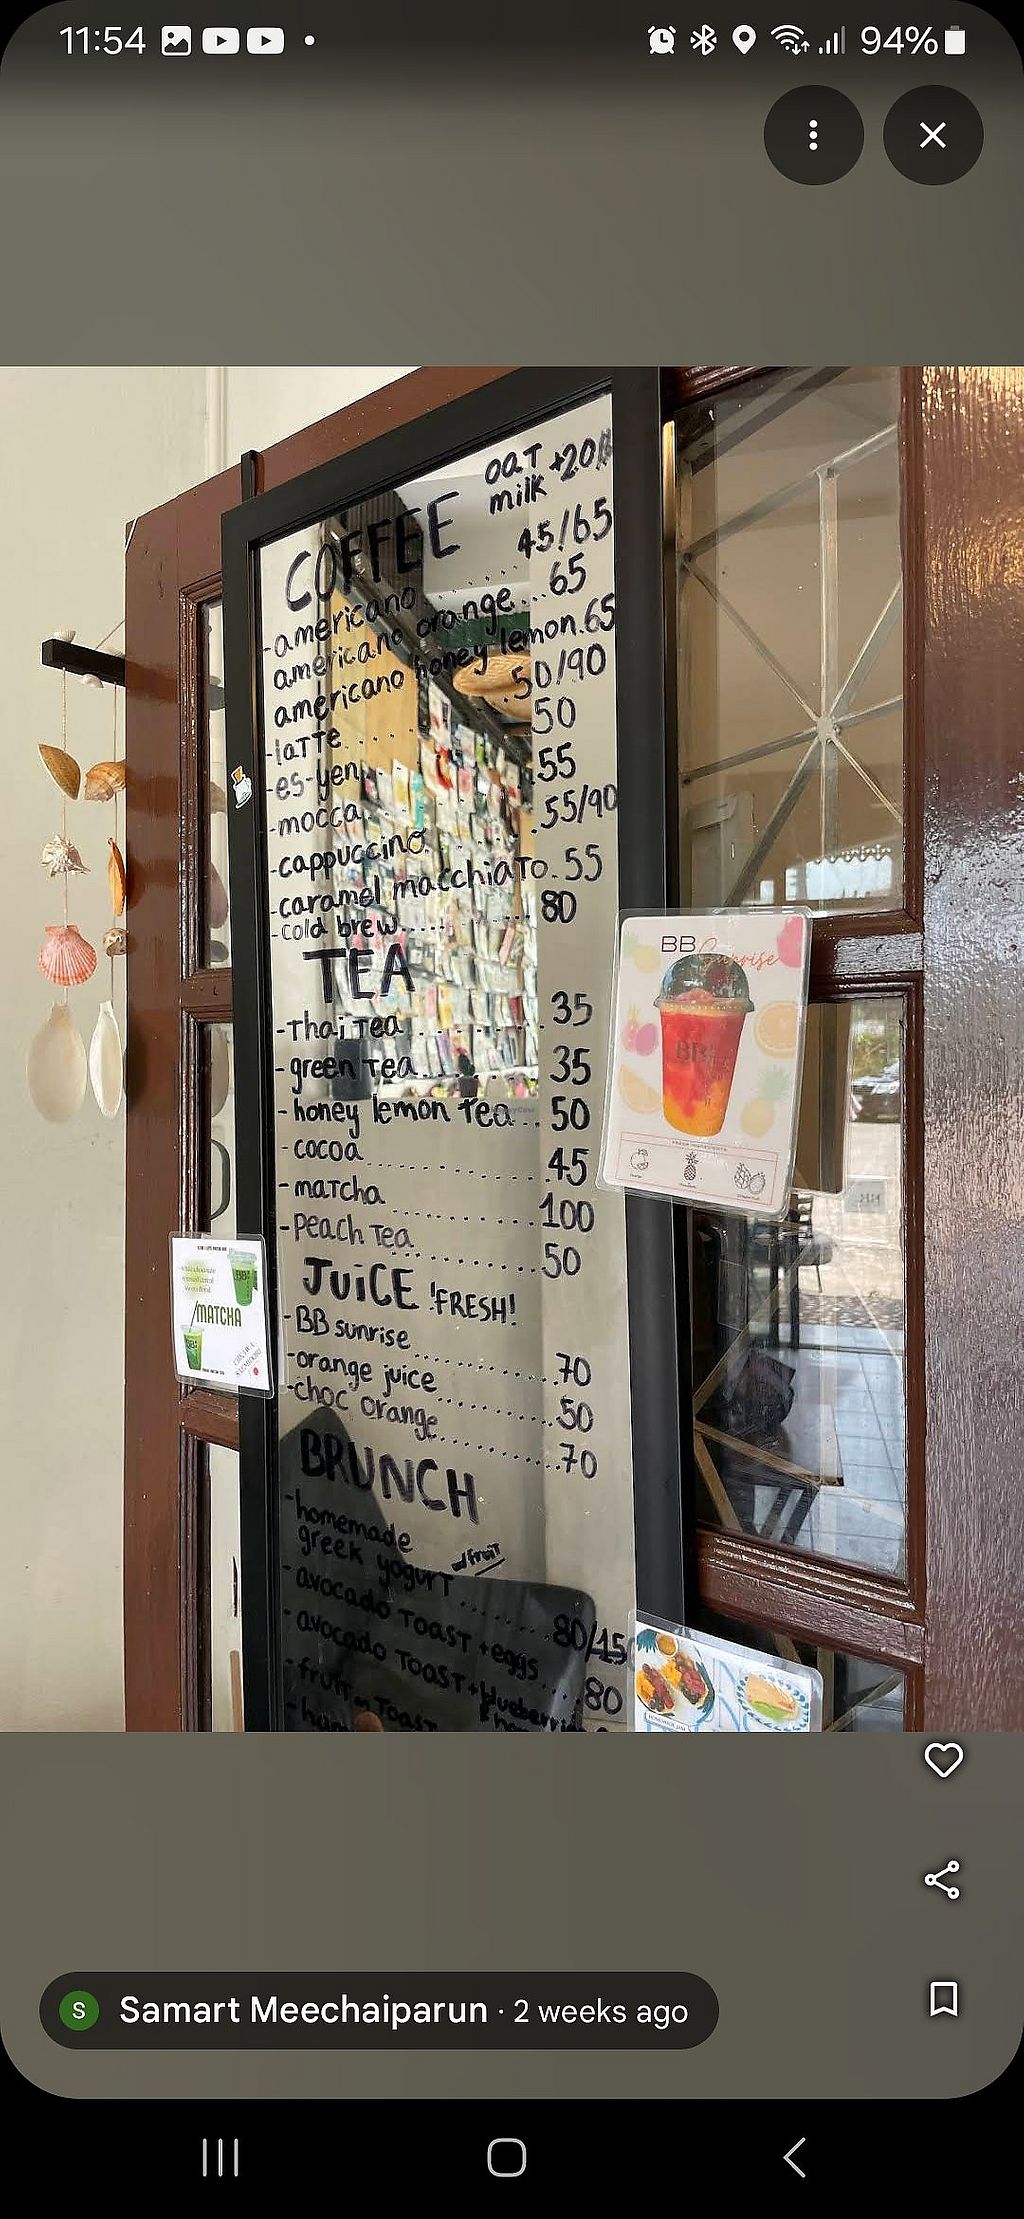 11:54
94%
oat
milk +20฿
COFFEE
-americano ........ 45/65
americano orange.... 65
americano honey lemon.65
-latte........ 50/90
-es-yen........ 50
-mocca........ 55
-cappuccino........ 55/90
-caramel macchiato.55
-cold brew........ 80
TEA
-Thai Tea ........ 35
-green Tea........ 35
-honey lemon Tea... 50
-cocoa........ 45
-matcha ........100
-Peach Tea ........50
JuiCE !FRESH!
-BB sunrise ........70
-orange juice ........50
-choc orange........70
BRUNCH
-homemade
greek yogurt w/fruit ........80/150
-avocado Toast +eggs ....80
-avocado Toast+blueberries
-fruit on Toast
BB Sunrise
BB
MATCHA
Samart Meechaiparun · 2 weeks ago
S